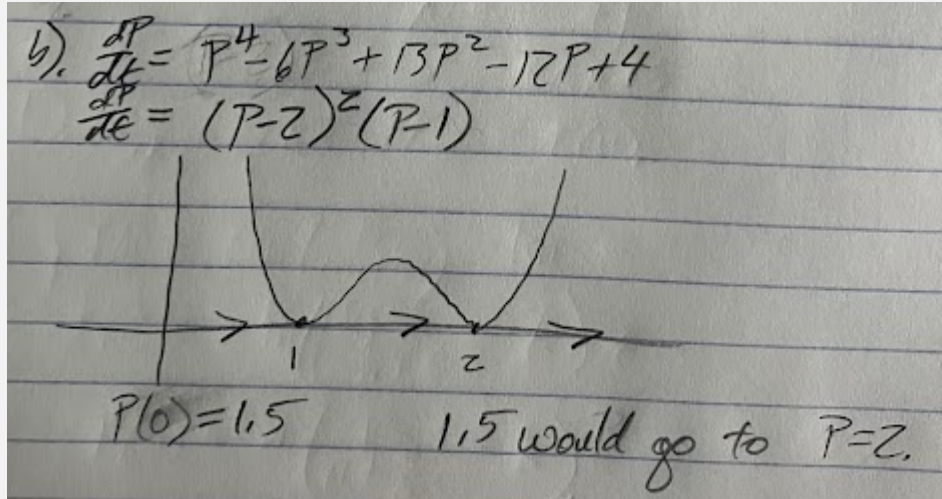 b). dP/dt = P⁴-6P³+13P²-12P+4
dP/dt = (P-2)²(P-1)
1 2
P(0)=1.5 1.5 would go to P=2.